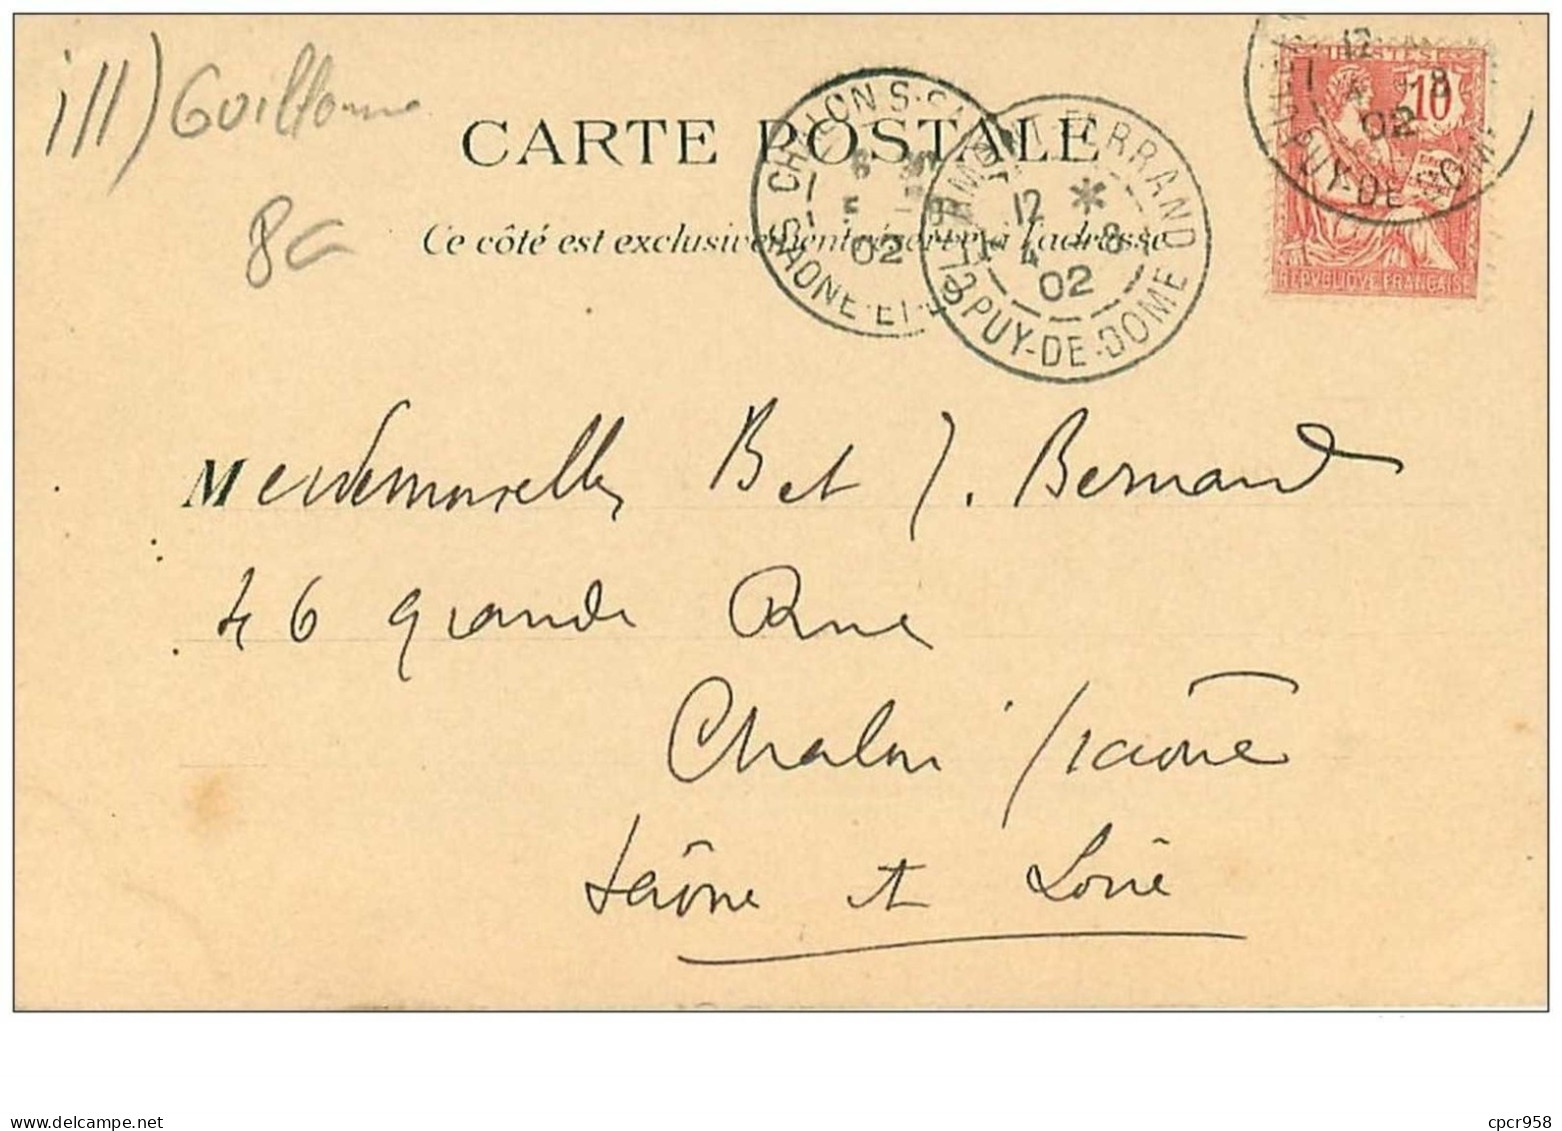 ill) Guillaume
8€
CARTE POSTALE
Ce côté est exclusivement réservé à l'adresse
CHALON S-SAONE
SAONE-ET-L
6
5
02
CLERMONT-FERRAND
PUY-DE-DOME
12 *
4 8
02
12
8
02
PUY-DE-DOME
POSTES
10
REPVBLIQVE FRANÇAISE
Mesdemoiselles B et J. Bernard
46 grande Rue
Chalon s/ Saône
Saône et Loire
cpcr958